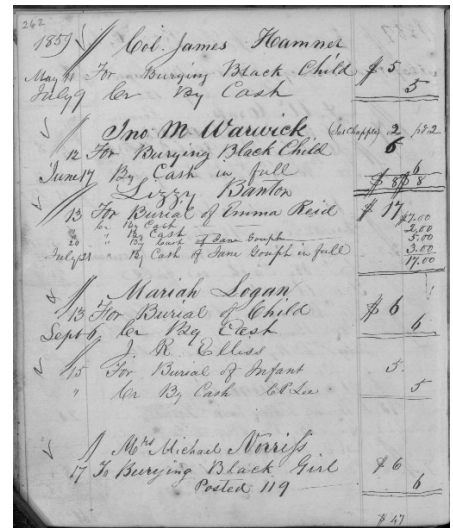 262
1857 Col. James Hamner
May 11 For Burying Black Child $ 5
July 9 Cr By Cash 5
Jno M Warwick 2
12 For Burying Black Child 6
June 17 By Cash in full 6
$ 8 $ 8
Lizzy Banton
13 For Burial of Emma Reid $ 17
Cr By Cash $7.00
" By Cash 2.00
20 " By Cash of Jane 5.00
July 21 " By Cash of Jane in full 3.00
17.00
Mariah Logan
13 For Burial of Child $ 6
Sept 6 Cr By Cash 6
J. R. Elliss
15 For Burial of Infant 5
" Cr By Cash 5
Mrs Michael Norriss
17 To Burying Black Girl $ 6
Posted 119 6
$ 47